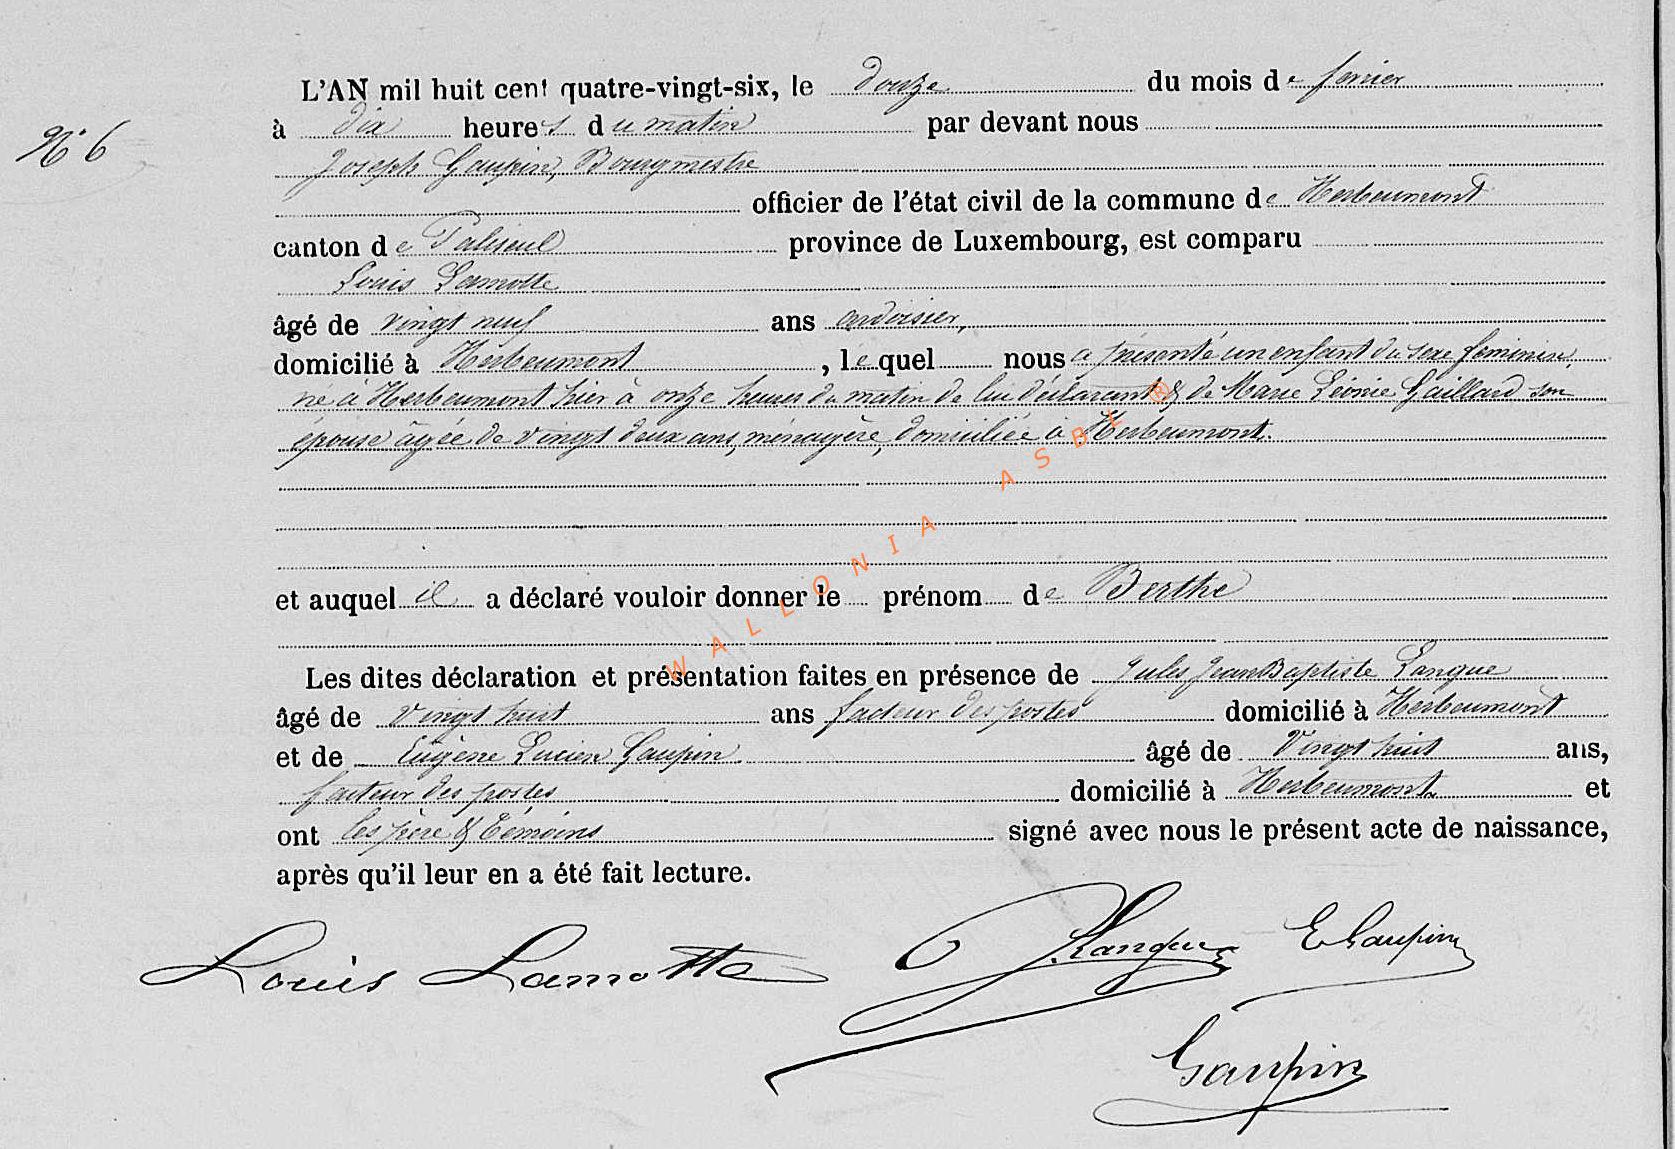 L'AN mil huit cent quatre-vingt-six, le douze du mois de février
N° 6
à dix heures du matin par devant nous
Joseph Gaupin, Bourgmestre
officier de l'état civil de la commune de Herbeumont
canton de Paliseul province de Luxembourg, est comparu
Louis Lamotte
âgé de vingt neuf ans ardoisier,
domicilié à Herbeumont, lequel nous a présenté un enfant du sexe féminin,
né à Herbeumont hier à onze heures du matin de lui déclarant & de Marie Léonie Gaillard son
épouse âgée de vingt deux ans, ménagère, domiciliée à Herbeumont.
et auquel il a déclaré vouloir donner le prénom de Berthe
Les dites déclaration et présentation faites en présence de Jules Jean Baptiste Langue
âgé de vingt huit ans facteur des postes domicilié à Herbeumont
et de Eugène Lucien Gaupin âgé de Vingt huit ans,
facteur des postes domicilié à Herbeumont et
ont les père & témoins signé avec nous le présent acte de naissance,
après qu'il leur en a été fait lecture.
Louis Lamotte JLangue E Gaupin
Gaupin
WALLONIA ASBL ®